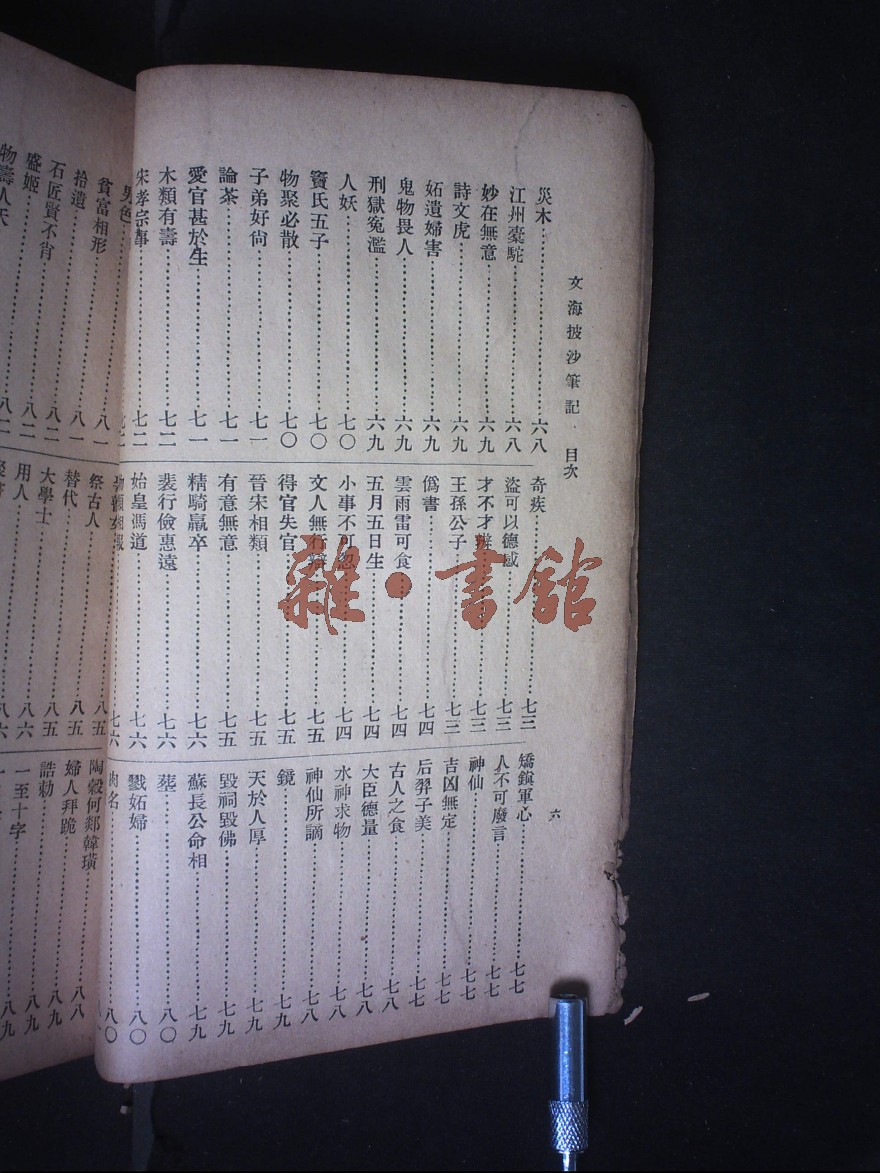 文海披沙筆記 · 目次
六
災木……六八
江州橐駝……六八
妙在無意……六九
詩文虎……六九
妬遺婦害……六九
鬼物畏人……六九
刑獄冤濫……六九
人妖……七〇
竇氏五子……七〇
物聚必散……七〇
子弟好尙……七一
論茶……七一
愛官甚於生……七一
木類有壽……七二
宋孝宗事……七二
男色
奇疾……七三
盜可以德感……七三
才不才辨……七三
王孫公子……七三
僞書……七四
雲雨雷可食……七四
五月五日生……七四
小事不可忽……七四
文人無行辯……七五
得官失官……七五
晉宋相類……七五
有意無意……七五
精騎羸卒……七六
裴行儉惠遠……七六
始皇馮道……七六
七六
矯鎭軍心……七七
人不可廢言……七七
神仙……七七
吉凶無定……七七
后羿子美……七七
古人之食……七八
大臣德量……七八
水神求物……七八
神仙所謫……七八
鏡……七九
天於人厚……七九
毀祠毀佛……七九
蘇長公命相……七九
塟……八〇
戮妬婦……八〇
肉名……八〇
貧富相形……八一
拾遺……八一
石匠賢不肖……八一
盛姬……八二
物壽人夭……八二
祭古人……八五
替代……八五
大學士……八五
用人……八六
八六
陶穀何郯韓璜
婦人拜跪……八八
誥勅……八九
一至十字……八九
八九
雜·書館